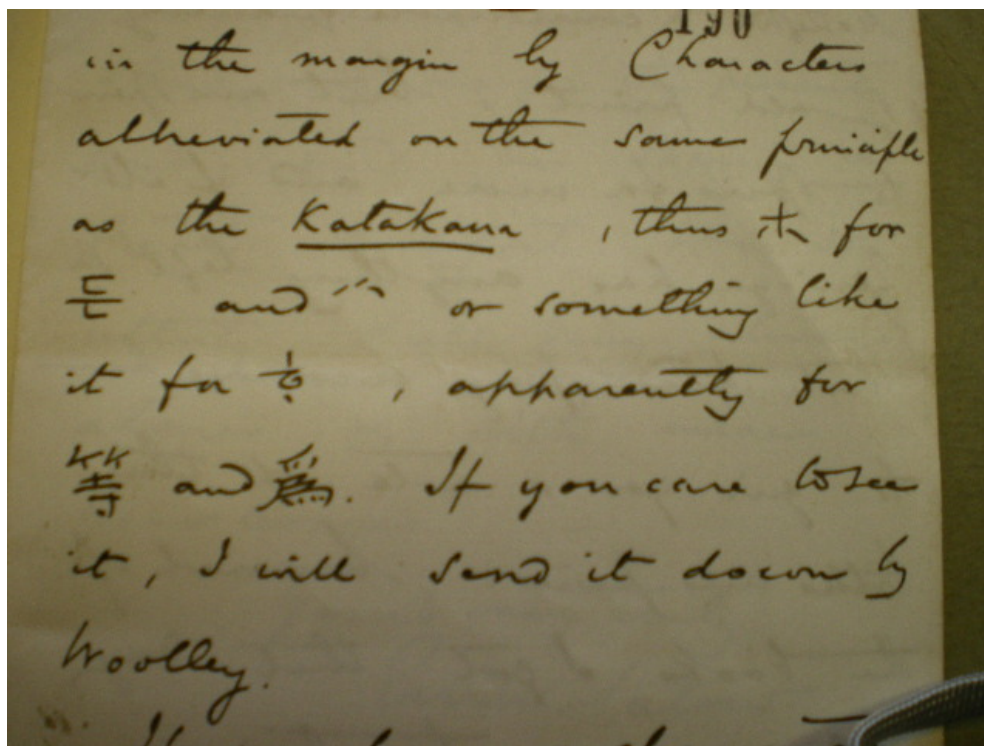 190
in the margin by Characters
abbreviated on the same principle
as the Katakana, thus 𛰙 for
든 and ⺍ or something like
it for ᅙ, apparently for
等 and 爲. If you care to see
it, I will send it down by
Woolley.